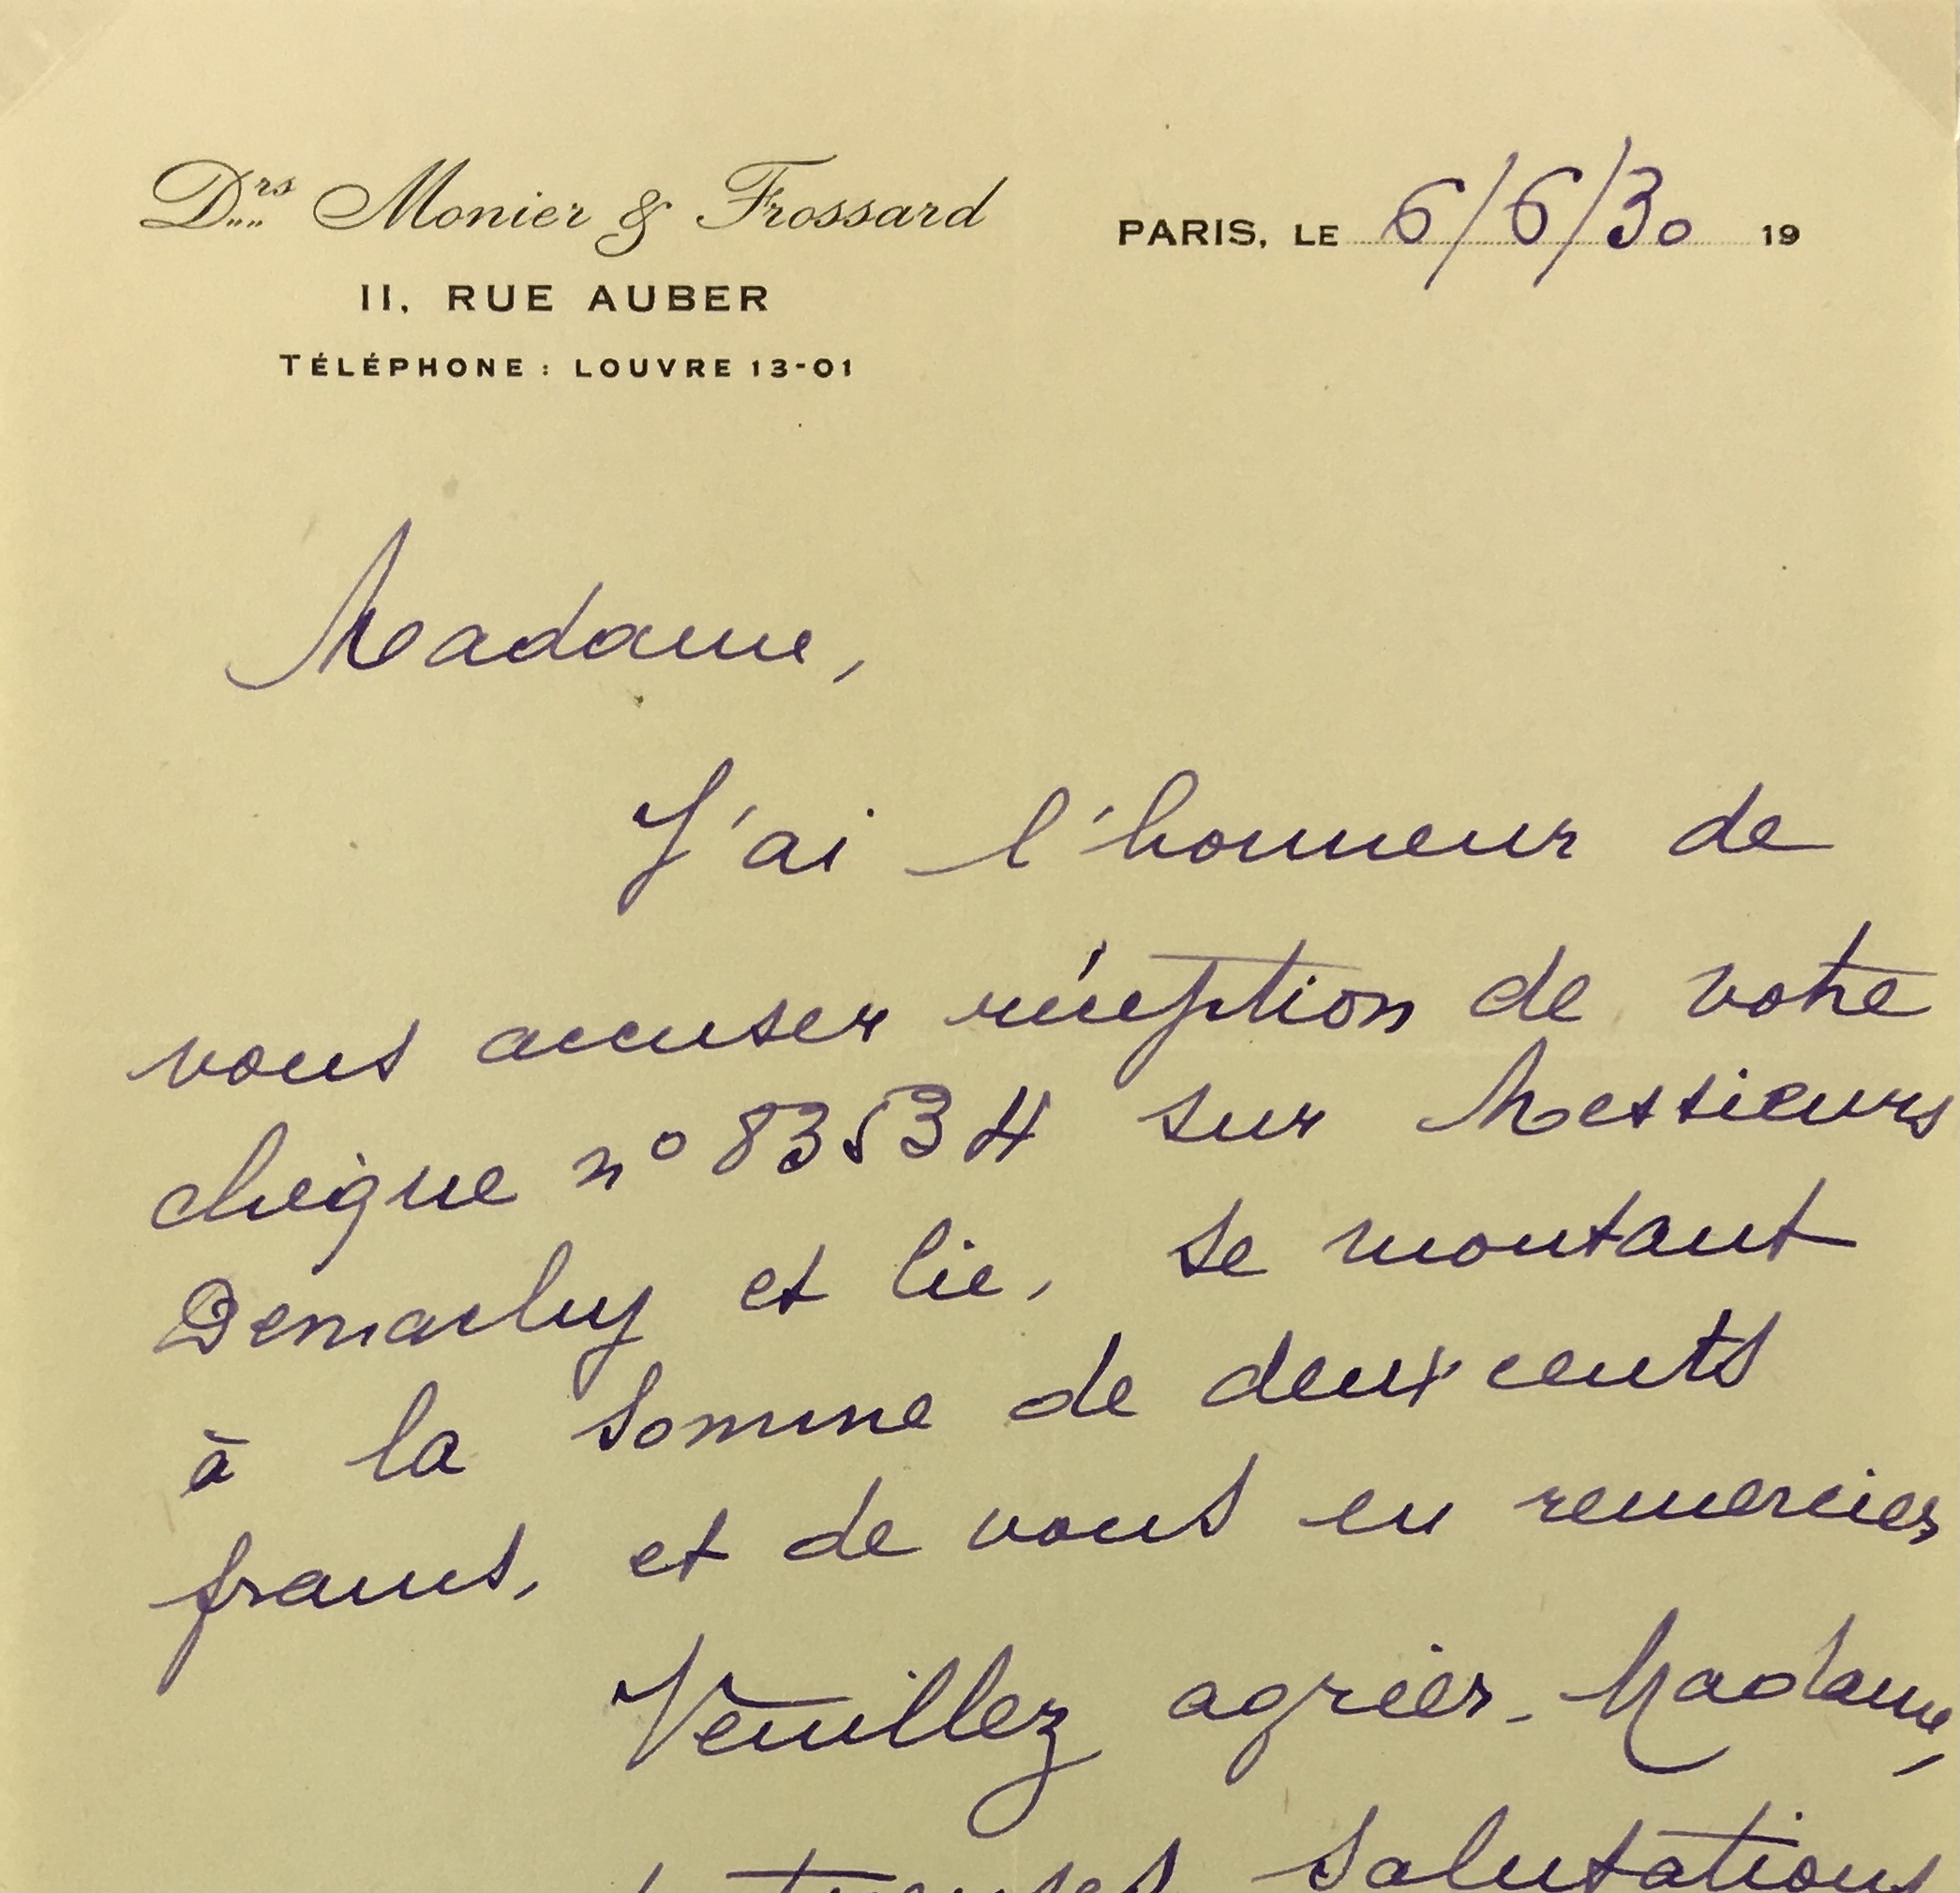 Drs Monier & Frossard
PARIS, LE 6/6/30 19
11, RUE AUBER
TÉLÉPHONE : LOUVRE 13-01
Madame,
J'ai l'honneur de
vous accuser réception de votre
chèque n° 83534 sur Messieurs
Demachy et Cie, se montant
à la somme de deux cents
francs, et de vous en remercier
Veuillez agréer, Madame,
salutations